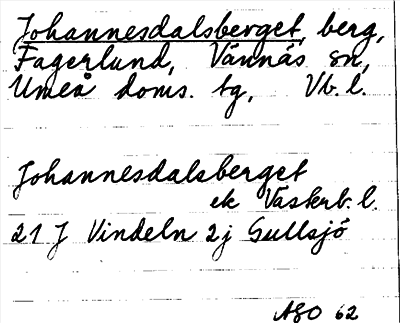 Johannesdalsberget, berg,
Fagerlund, Vännäs sn,
Umeå doms. tg, Vb. l.
Johannesdalsberget
ek Väskrb. l.
21 J Vindeln 2j Gullsjö
ASO 62